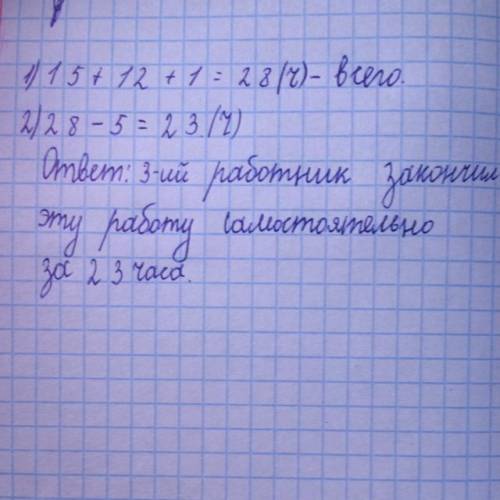 1) 15 + 12 + 1 = 28 (ч) - всего.
2) 28 - 5 = 23 (ч)
Ответ: 3-ий работник закончил
эту работу самостоятельно
за 23 часа.